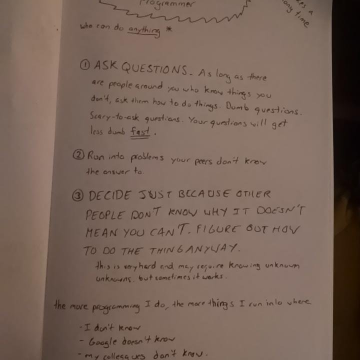 Programmer
who can do anything *
① ASK QUESTIONS. As long as there
are people around you who know things you
don't, ask them how to do things. Dumb questions.
Scary-to-ask questions. Your questions will get
less dumb fast.
② Run into problems your peers don't know
the answer to
③ DECIDE JUST BECAUSE OTHER
PEOPLE DON'T KNOW WHY IT DOESN'T
MEAN YOU CAN'T. FIGURE OUT HOW
TO DO THE THING ANYWAY.
this is very hard and may require knowing unknown
unknowns. but sometimes it works.
the more programming I do, the more things I run into where
- I don't know
- Google doesn't know
- my colleagues don't know
time